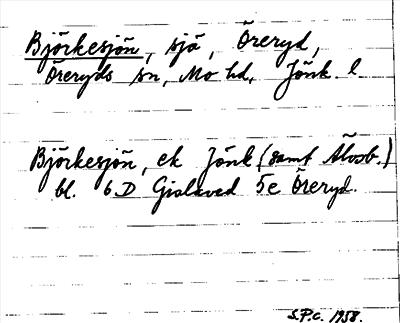 Björkesjön, sjö, Öreryd,
Öreryds sn, Mo hd, Jönk. l
Björkesjön, ek Jönk (samt Älvsb.)
bl. 6 D Gislaved 5e Öreryd.
S.P.C. 1958.